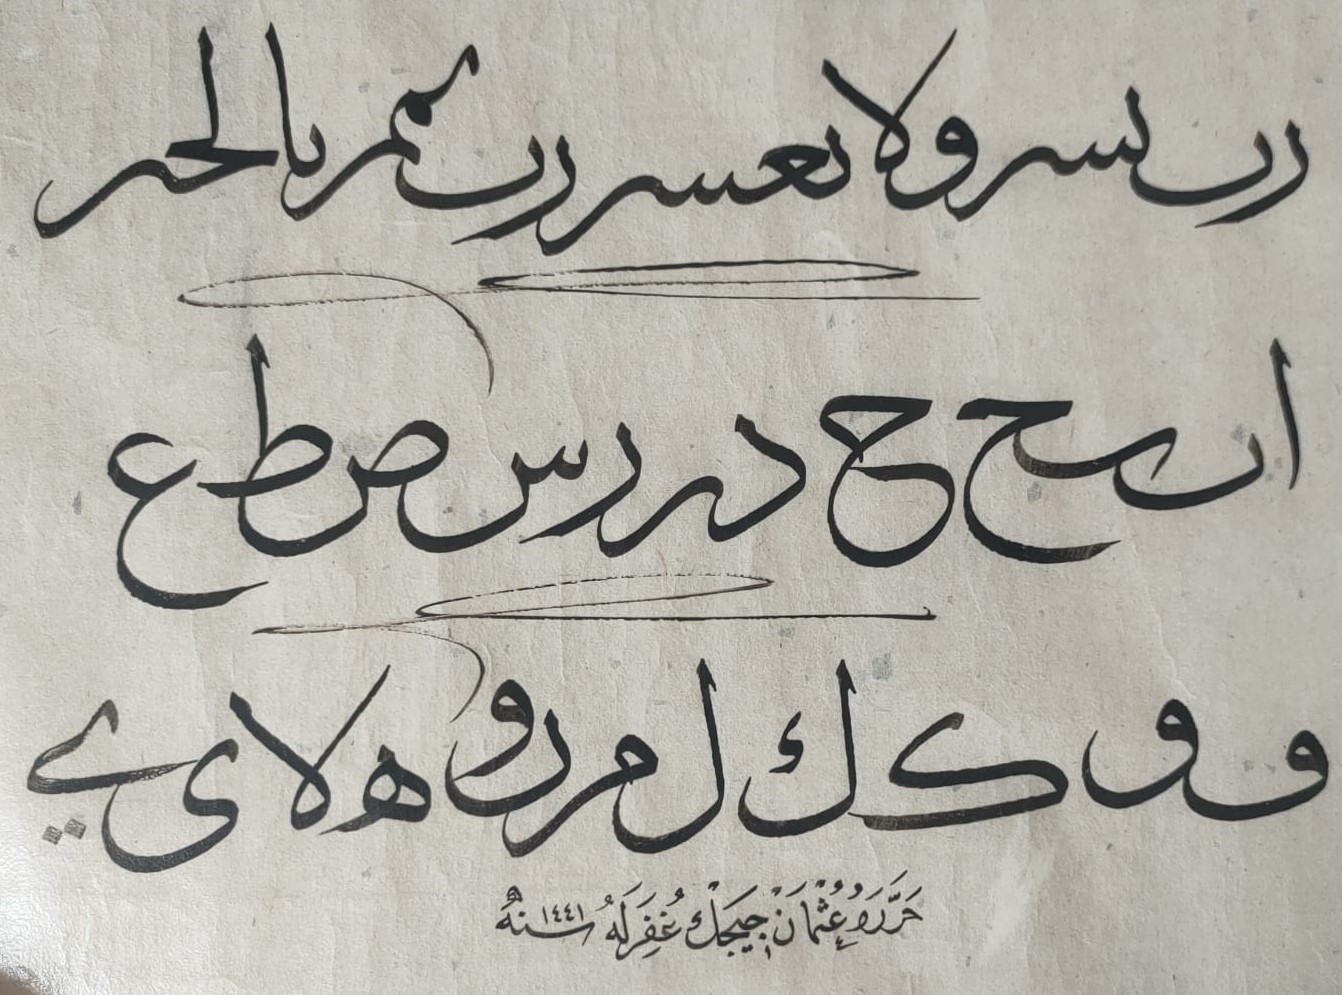 رب يسر ولا تعسر رب تمم بالخير
ا ب ج ح د ر ر س ص ط ع
ف ق ك ك ل م ن و ه لا ى ي
حَرَّرَهُ عُثْمَان جيجك غُفِرَ لَهُ سنه ١٤٤١